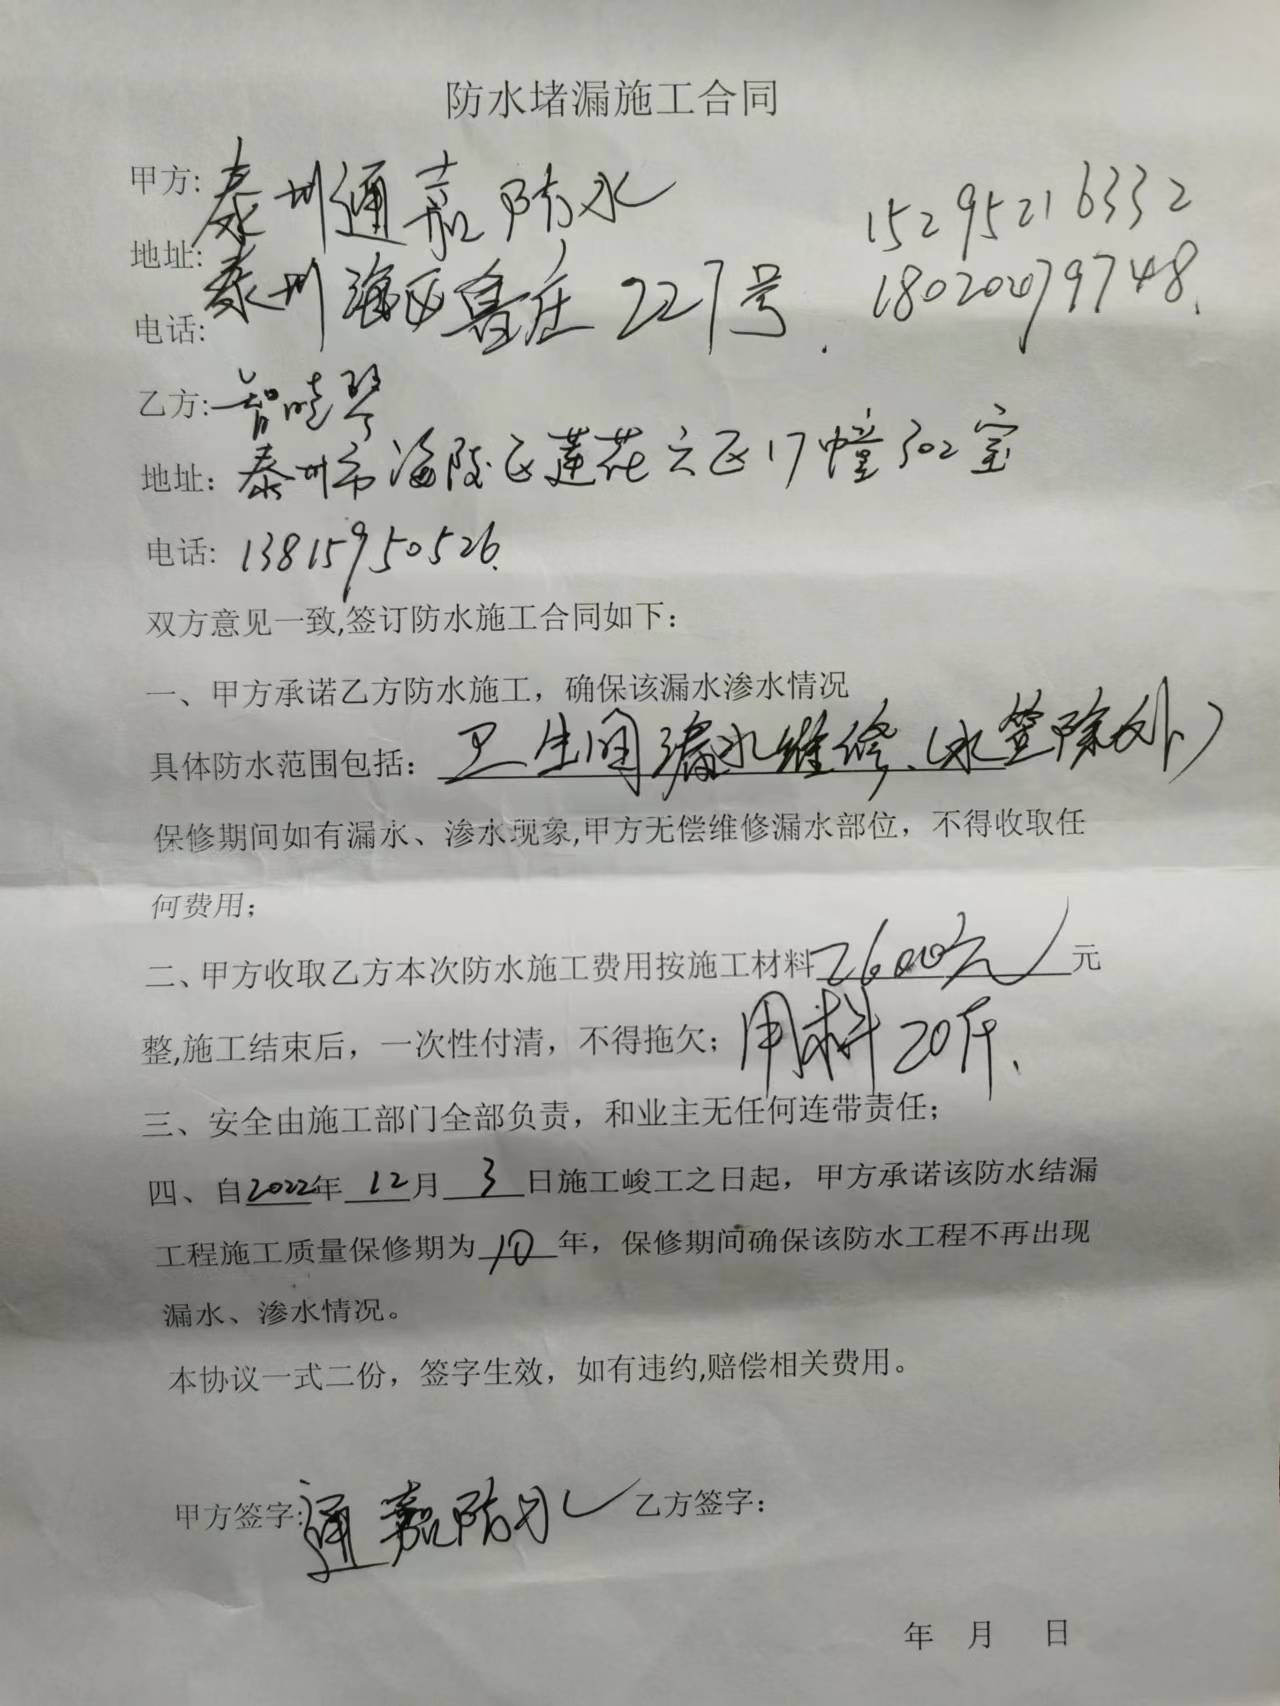 防水堵漏施工合同
甲方: 泰州通嘉防水 15295216332
地址: 泰州海区鲁庄227号
电话:
乙方: 智晓琴
地址: 泰州市海陵区莲花六区17幢302室
电话: 13815950526.
双方意见一致,签订防水施工合同如下:
一、甲方承诺乙方防水施工，确保该漏水渗水情况
具体防水范围包括: 卫生间漏水维修.(水管除外)
保修期间如有漏水、渗水现象,甲方无偿维修漏水部位，不得收取任
何费用;
二、甲方收取乙方本次防水施工费用按施工材料2600元元
整,施工结束后，一次性付清，不得拖欠; 用料20斤.
三、安全由施工部门全部负责，和业主无任何连带责任;
四、自2022年12月3日施工峻工之日起，甲方承诺该防水结漏
工程施工质量保修期为10年，保修期间确保该防水工程不再出现
漏水、渗水情况。
本协议一式二份，签字生效，如有违约,赔偿相关费用。
甲方签字: 通嘉防水 乙方签字:
年 月 日